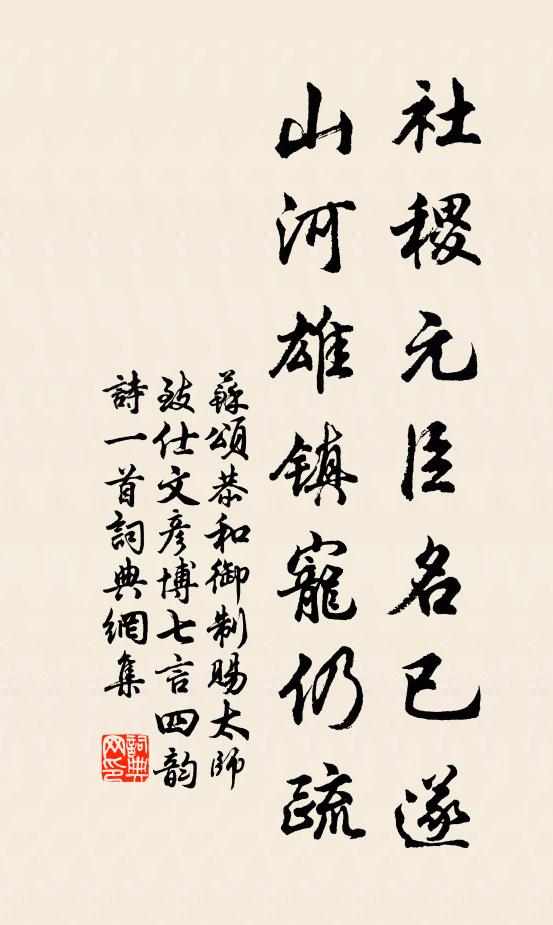 社稷元臣名已遂
山河雄镇寵仍疏
蘇頌恭和御制賜太師
致仕文彦博七言四韵
詩一首詞典網集
詞典
网印